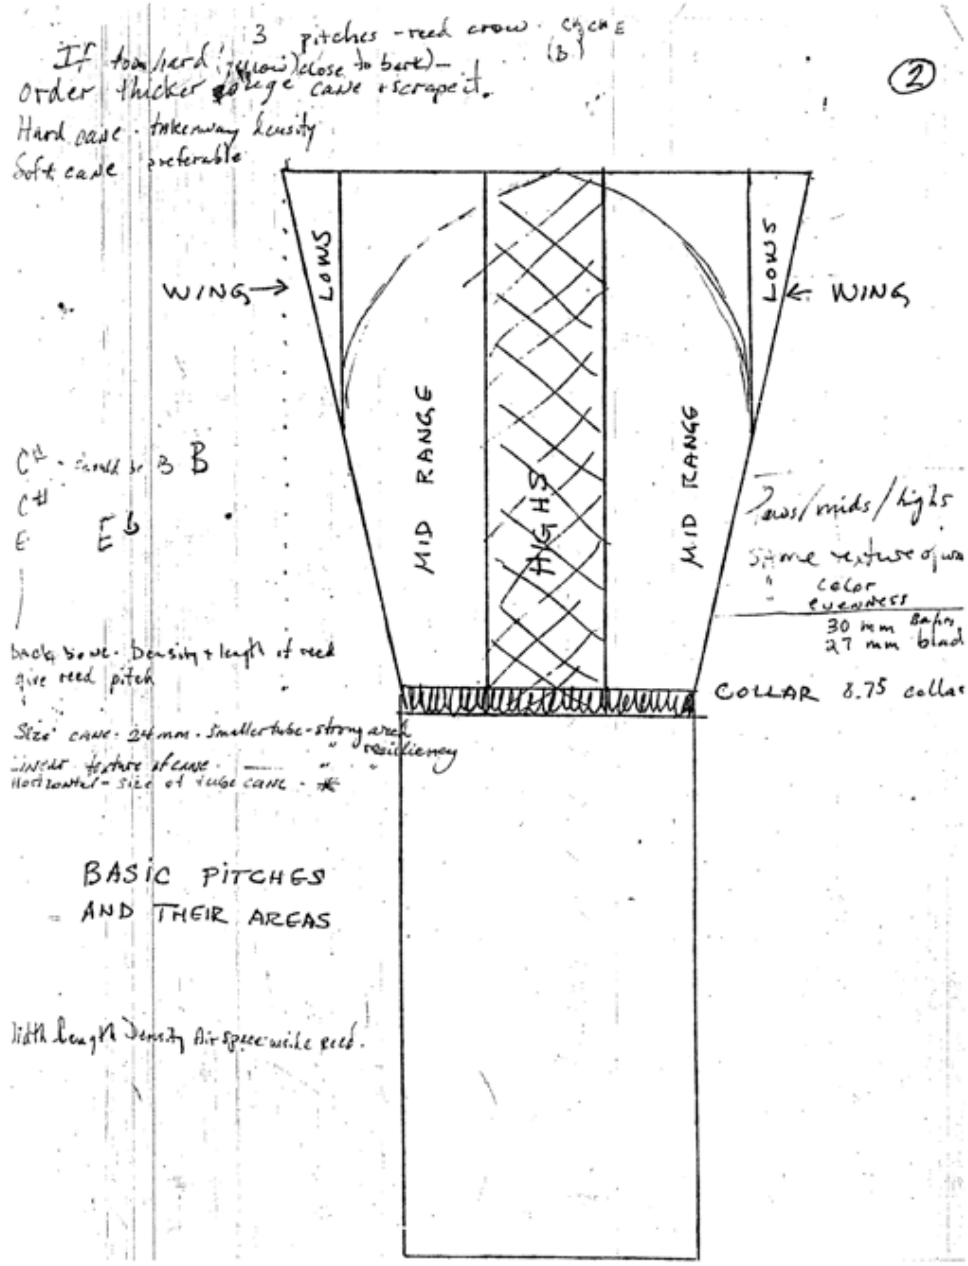 3 pitches - reed crow. C# C# E
(B)
②
If too hard (yellow) close to bark) -
order thicker gouge cane & scrape it.
Hard cane - take away density
Soft cane preferable
LOWS
LOWS
WING →
← WING
MID RANGE
HIGHS
MID RANGE
C# - should be B
C#
E Eb
Lows/mids/highs
Same texture of
" color
" evenness
30 mm
27 mm
back bone - Density + length of reed
give reed pitch
COLLAR 8.75
Size cane - 24 mm - smaller tube - strong arch
" " resiliency
Linear texture of cane
Horizontal - size of tube cane -
BASIC PITCHES
AND THEIR AREAS
Length Density Air space inside reed.